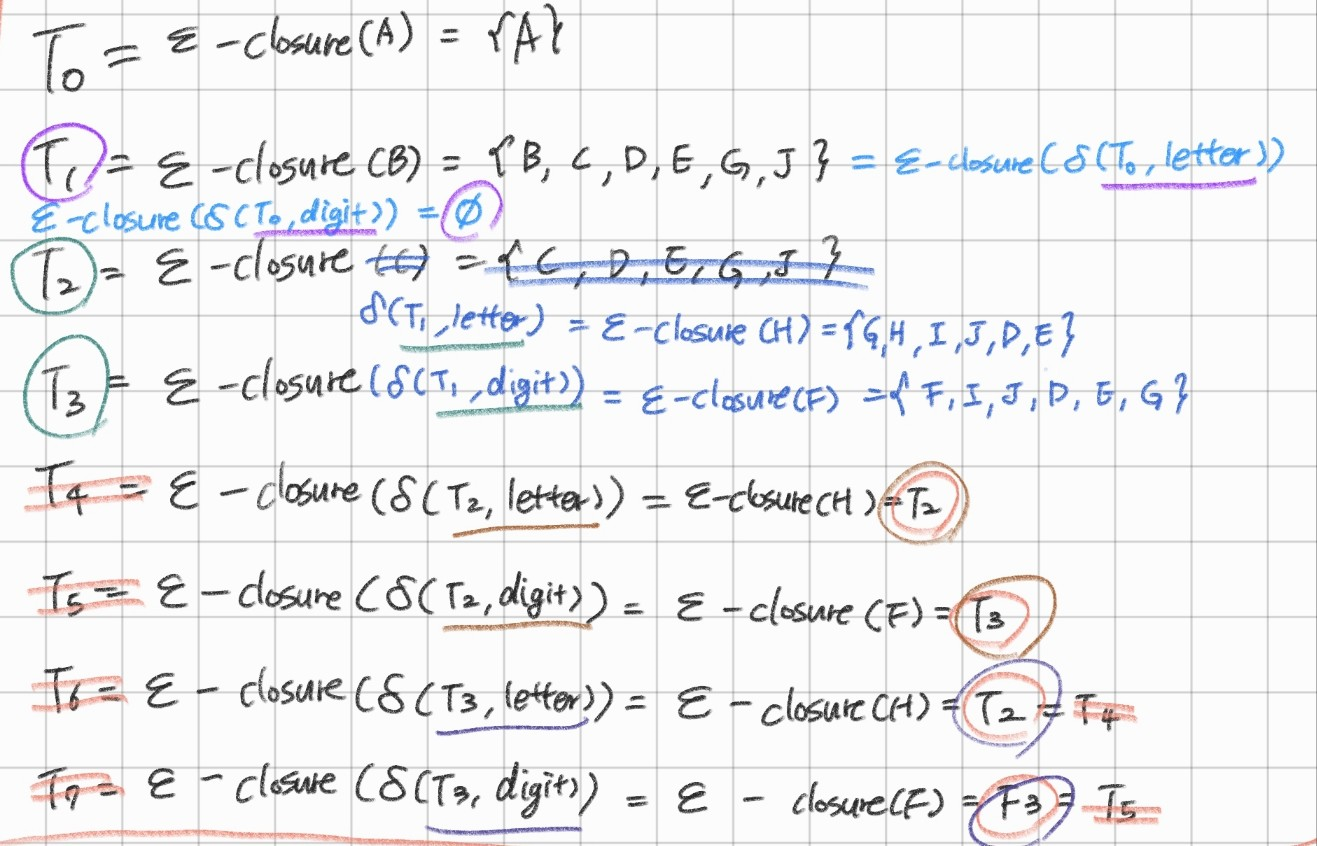 T₀ = ε -closure(A) = {A}
T₁ = ε -closure (B) = { B, C, D, E, G, J } = ε-closure(δ(T₀, letter))
ε-closure (δ(T₀, digit)) = ∅
T₂ = ε -closure (C) = { C, D, E, G, J }
δ(T₁, letter) = ε-closure (H) = {G, H, I, J, D, E}
T₃ = ε -closure (δ(T₁, digit)) = ε-closure(F) = { F, I, J, D, E, G }
T₄ = ε - closure (δ(T₂, letter)) = ε-closure(H) = T₂
T₅ = ε - closure (δ(T₂, digit)) = ε - closure (F) = T₃
T₆ = ε - closure (δ(T₃, letter)) = ε - closure(H) = T₂ = T₄
T₇ = ε - closure (δ(T₃, digit)) = ε - closure(F) = F3 = T₅